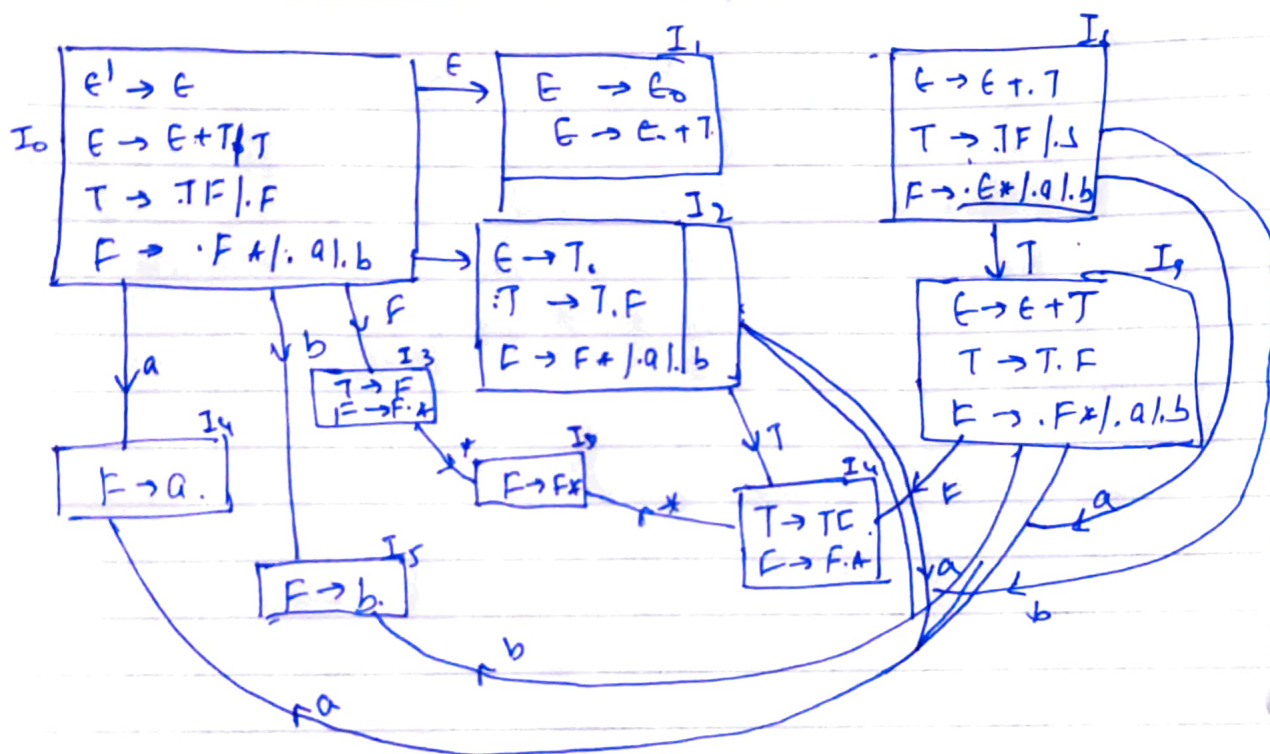 I₀
E' → E
E → E+T/T
T → .TF/.F
F → .F*/.a/.b
E
I₁
E → E.
E → E.+T.
I₂
E → T.
.T → T.F
F → F*/.a/.b
I₆
E → E+.T
T → .TF/.s
F → .E*/.a/.b
T
I₉
E → E+T
T → T.F
F → .F*/.a/.b
a
b
F
I₃
T → F
F → F.*
*
I₄
F → a.
I₈
F → F*
*
T
I₄
T → TF.
F → F.*
F
a
a
b
I₅
F → b.
b
a